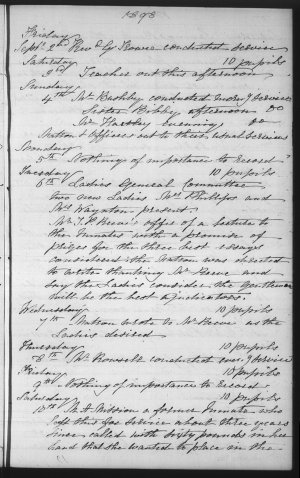 1898
Friday
Septr 2nd Revd G Rowe conducted service
Saturday 10 pupils
3rd Teacher out this afternoon
Sunday
4th Mr Bashby conducted morng service
Sister Bibby afternoon do
Mr Hartley evening do
Matron & Officers out to their usual services
Monday
5th Nothing of importance to record
Tuesday 10 pupils
6th Ladies General Committee
two new Ladies Mrs Phillips and
Mrs Waynton present.
Mr. Reeve's offer of a lecture to
the Inmates with a promise of
prizes for the three best essays
considered the Matron was directed
to write thanking Mr Reeve and
say the Ladies consider the Gentlemen
will be the best adjudicators.
Wednesday 10 pupils
7th Matron wrote to Mr Reeve as the
Ladies desired
Thursday 10 pupils
8th Mr Rowsell conducted eveg service
Friday 10 pupils
9th Nothing of importance to record
Saturday 10 pupils
10th M. A. a former Inmate who
left this for service about three years
since called with sixty pounds in her
hand that she wanted to place in the